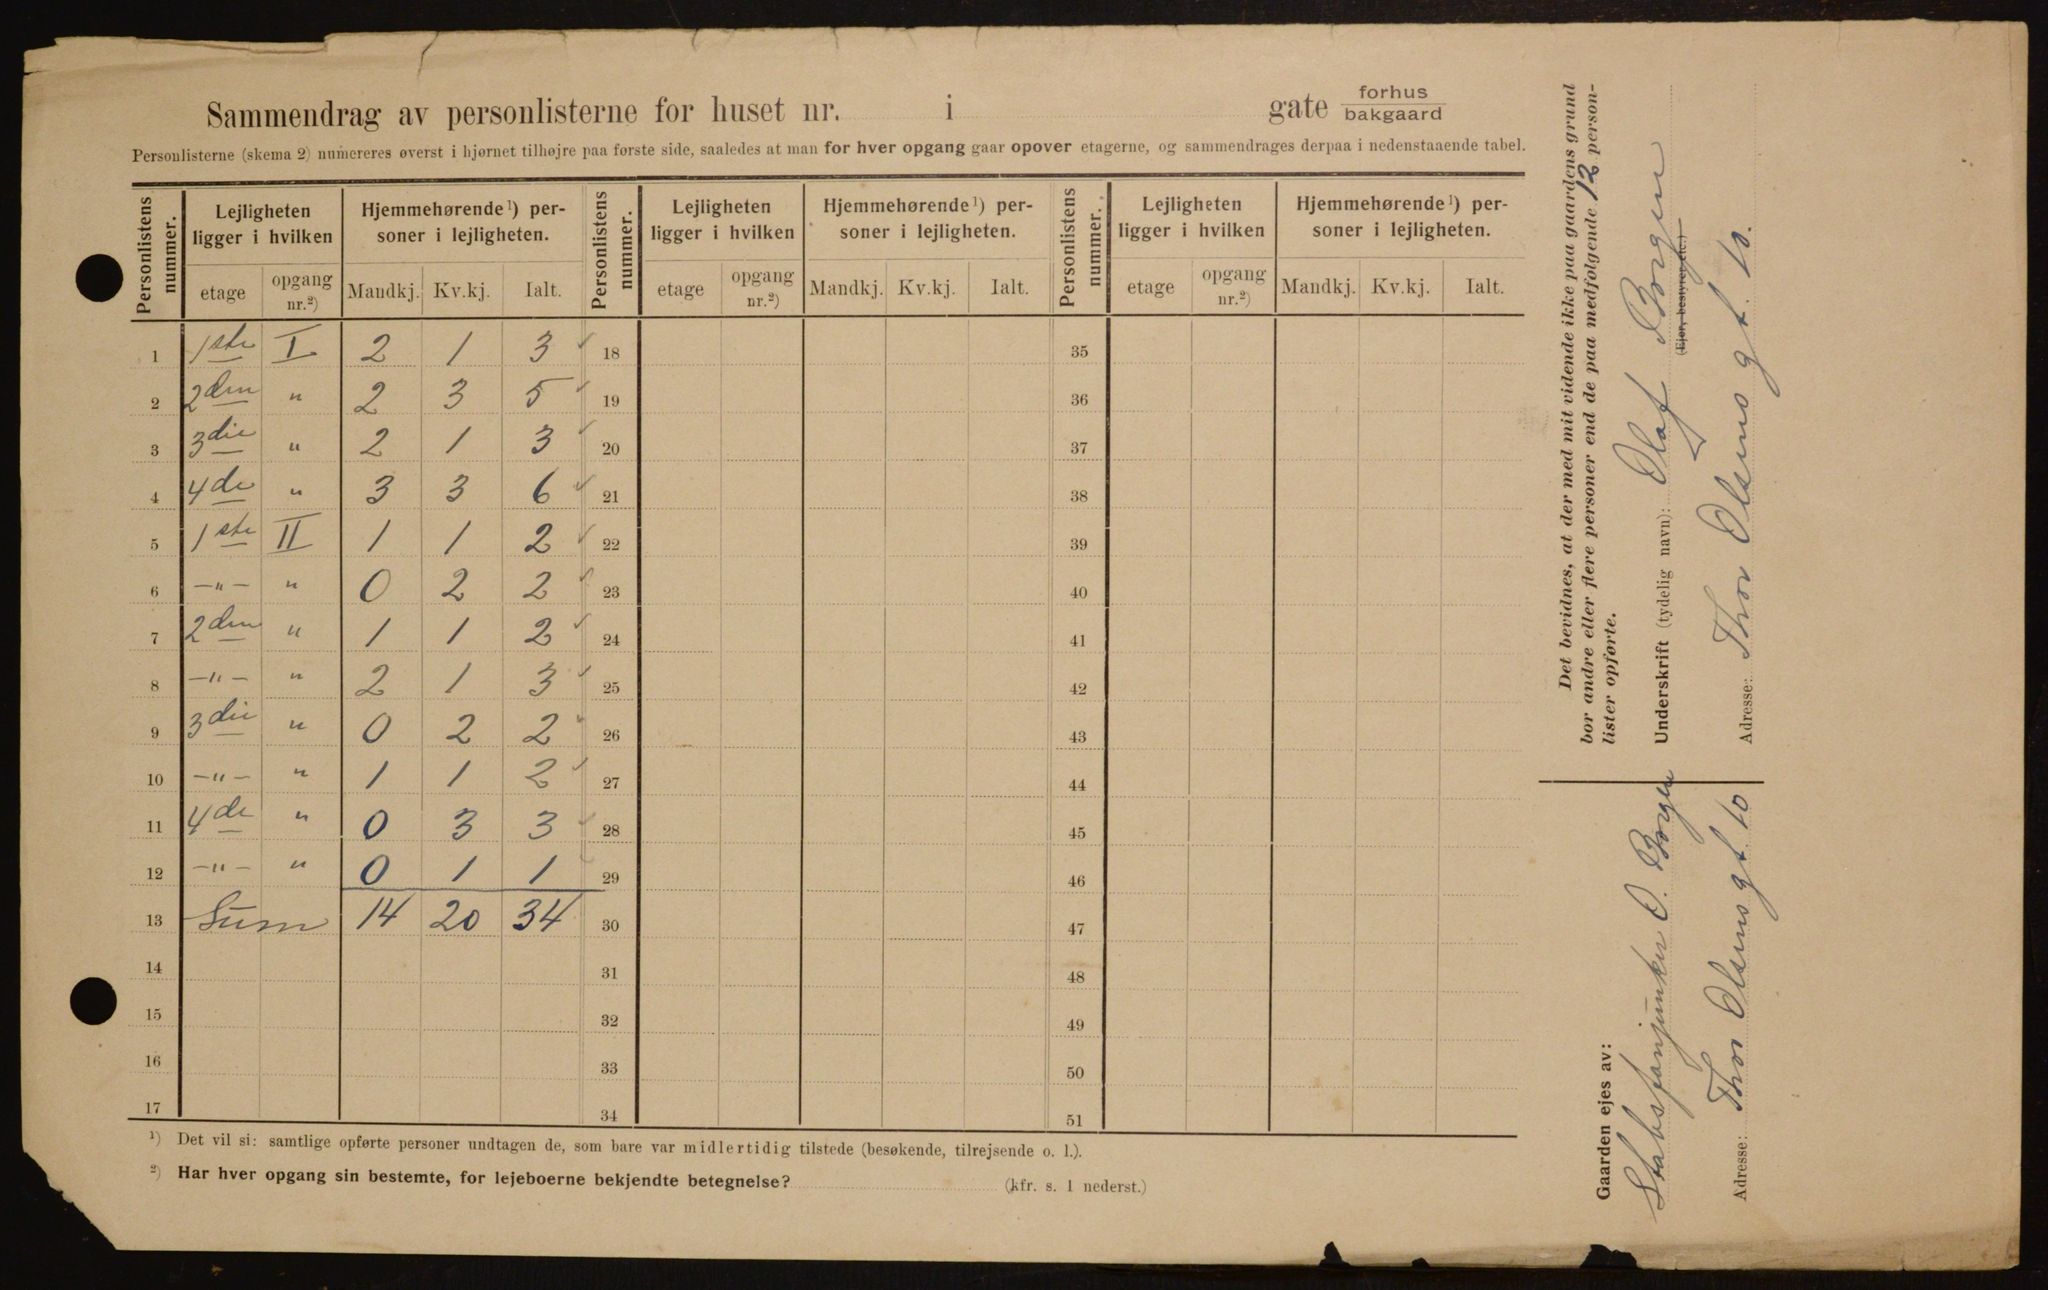 Sammendrag av personlisterne for huset nr. i gate forhus bakgaard
Personlisterne (skema 2) numereres øverst i hjørnet tilhøjre paa første side, saaledes at man for hver opgang gaar opover etagerne, og sammendrages derpaa i nedenstaaende tabel.
Personlistens nummer. Lejligheten ligger i hvilken Hjemmehørende ¹) personer i lejligheten. Personlistens nummer. Lejligheten ligger i hvilken Hjemmehørende ¹) personer i lejligheten. Personlistens nummer. Lejligheten ligger i hvilken Hjemmehørende ¹) personer i lejligheten.
etage opgang nr.²) Mandkj. Kv.kj. Ialt. etage opgang nr.²) Mandkj. Kv.kj. Ialt. etage opgang nr.²) Mandkj. Kv.kj. Ialt.
1 1ste I 2 1 3 18 35
2 2den " 2 3 5 19 36
3 3die " 2 1 3 20 37
4 4de " 3 3 6 21 38
5 1ste II 1 1 2 22 39
6 -"- " 0 2 2 23 40
7 2den " 1 1 2 24 41
8 -"- " 2 1 3 25 42
9 3die " 0 2 2 26 43
10 -"- " 1 1 2 27 44
11 4de " 0 3 3 28 45
12 -"- " 0 1 1 29 46
13 Sum 14 20 34 30 47
14 31 48
15 32 49
16 33 50
17 34 51
¹) Det vil si: samtlige opførte personer undtagen de, som bare var midlertidig tilstede (besøkende, tilrejsende o. l.).
²) Har hver opgang sin bestemte, for lejeboerne bekjendte betegnelse? (kfr. s. 1 nederst.)
Det bevidnes, at der med mit vidende ikke paa gaardens grund
bor andre eller flere personer end de paa medfølgende 12 person-
lister opførte.
Underskrift (tydelig navn): Olaf Borgen
(Ejer, bestyrer etc.)
Adresse: Thor Olsens gt. 10.
Gaarden ejes av:
Stabsfanejunker O. Borgen
Adresse: Thor Olsens gt 10